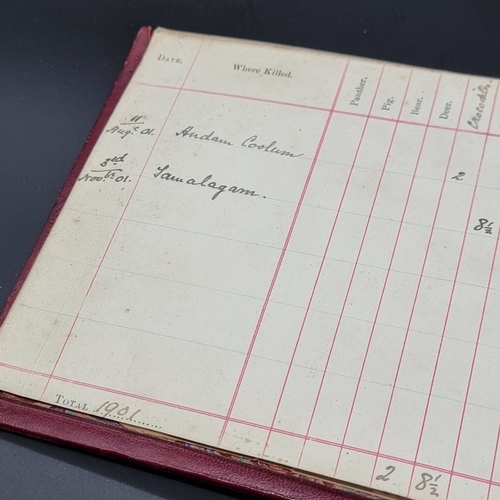 DATE. Where Killed. Panther. Pig. Bear. Deer. Crocodile.
11
Augt 01. Andam Coolum 2
3rd
Novbr 01. Samalagam. 8½
TOTAL 1901 2 8½